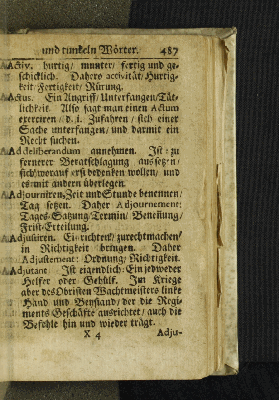 und tunkeln Wörter. 487
Activ. hurtig/ munter/ fertig und ge-
schicklich. Dahero activität/ Hurtig-
keit/ Fertigkeit/ Rürung.
Actus. Ein Angriff/ Unterfangen/ Tät-
lichkeit. Also sagt man einen Actum
exerciren/ d. i. Zufahren/ sich einer
Sache unterfangen/ und darmit ein
Recht suchen.
Ad deliberandum annehmen. Ist: zu
fernerer Beratschlagung aussetzen/
sich worauf erst bedenken wollen/ und
es mit andern überlegen.
Adjourniren, Zeit und Stunde benennen/
Tag setzen. Daher Adjournement:
Tages-Satzung/ Termin/ Benennung/
Frist-Erteilung.
Adjustiren. Einrichten/ zurechtmachen/
in Richtigkeit bringen. Daher
Adjustement: Ordnung/ Richtigkeit.
Adjutant. Ist eigendlich: Ein jedweder
Helfer oder Gehülf. Im Kriege
aber des Obristen Wachtmeisters linke
Hand und Beystand/ der die Regi-
ments Geschäfte ausrichtet/ auch die
Befehle hin und wieder trägt.
X 4 Adju-